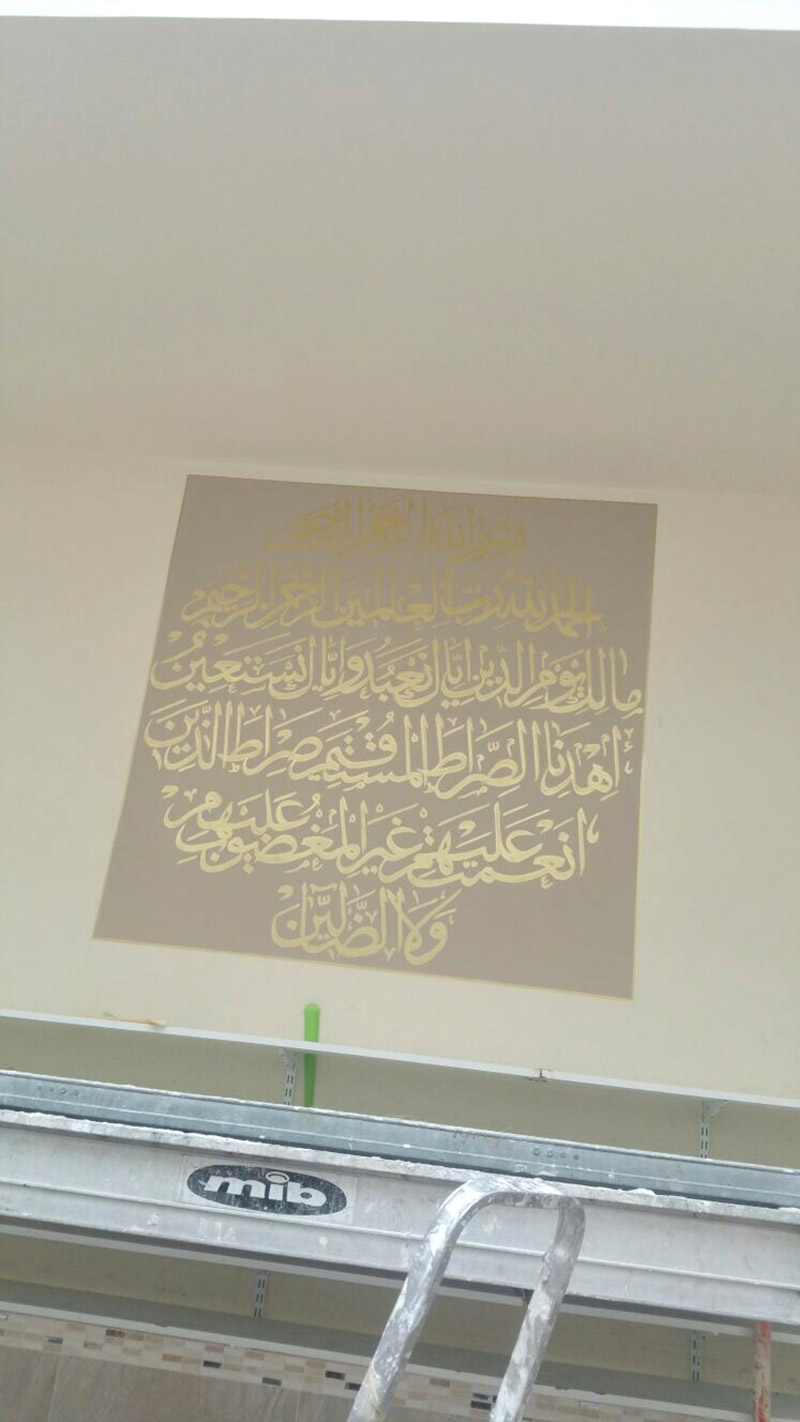 بسم الله الرحمن الرحيم
الحمد لله رب العلمين الرحمن الرحيم
مالك يوم الدين اياك نعبد واياك نستعين
اهدنا الصراط المستقيم صراط الذين
انعمت عليهم غير المغضوب عليهم
ولا الضالين
mib